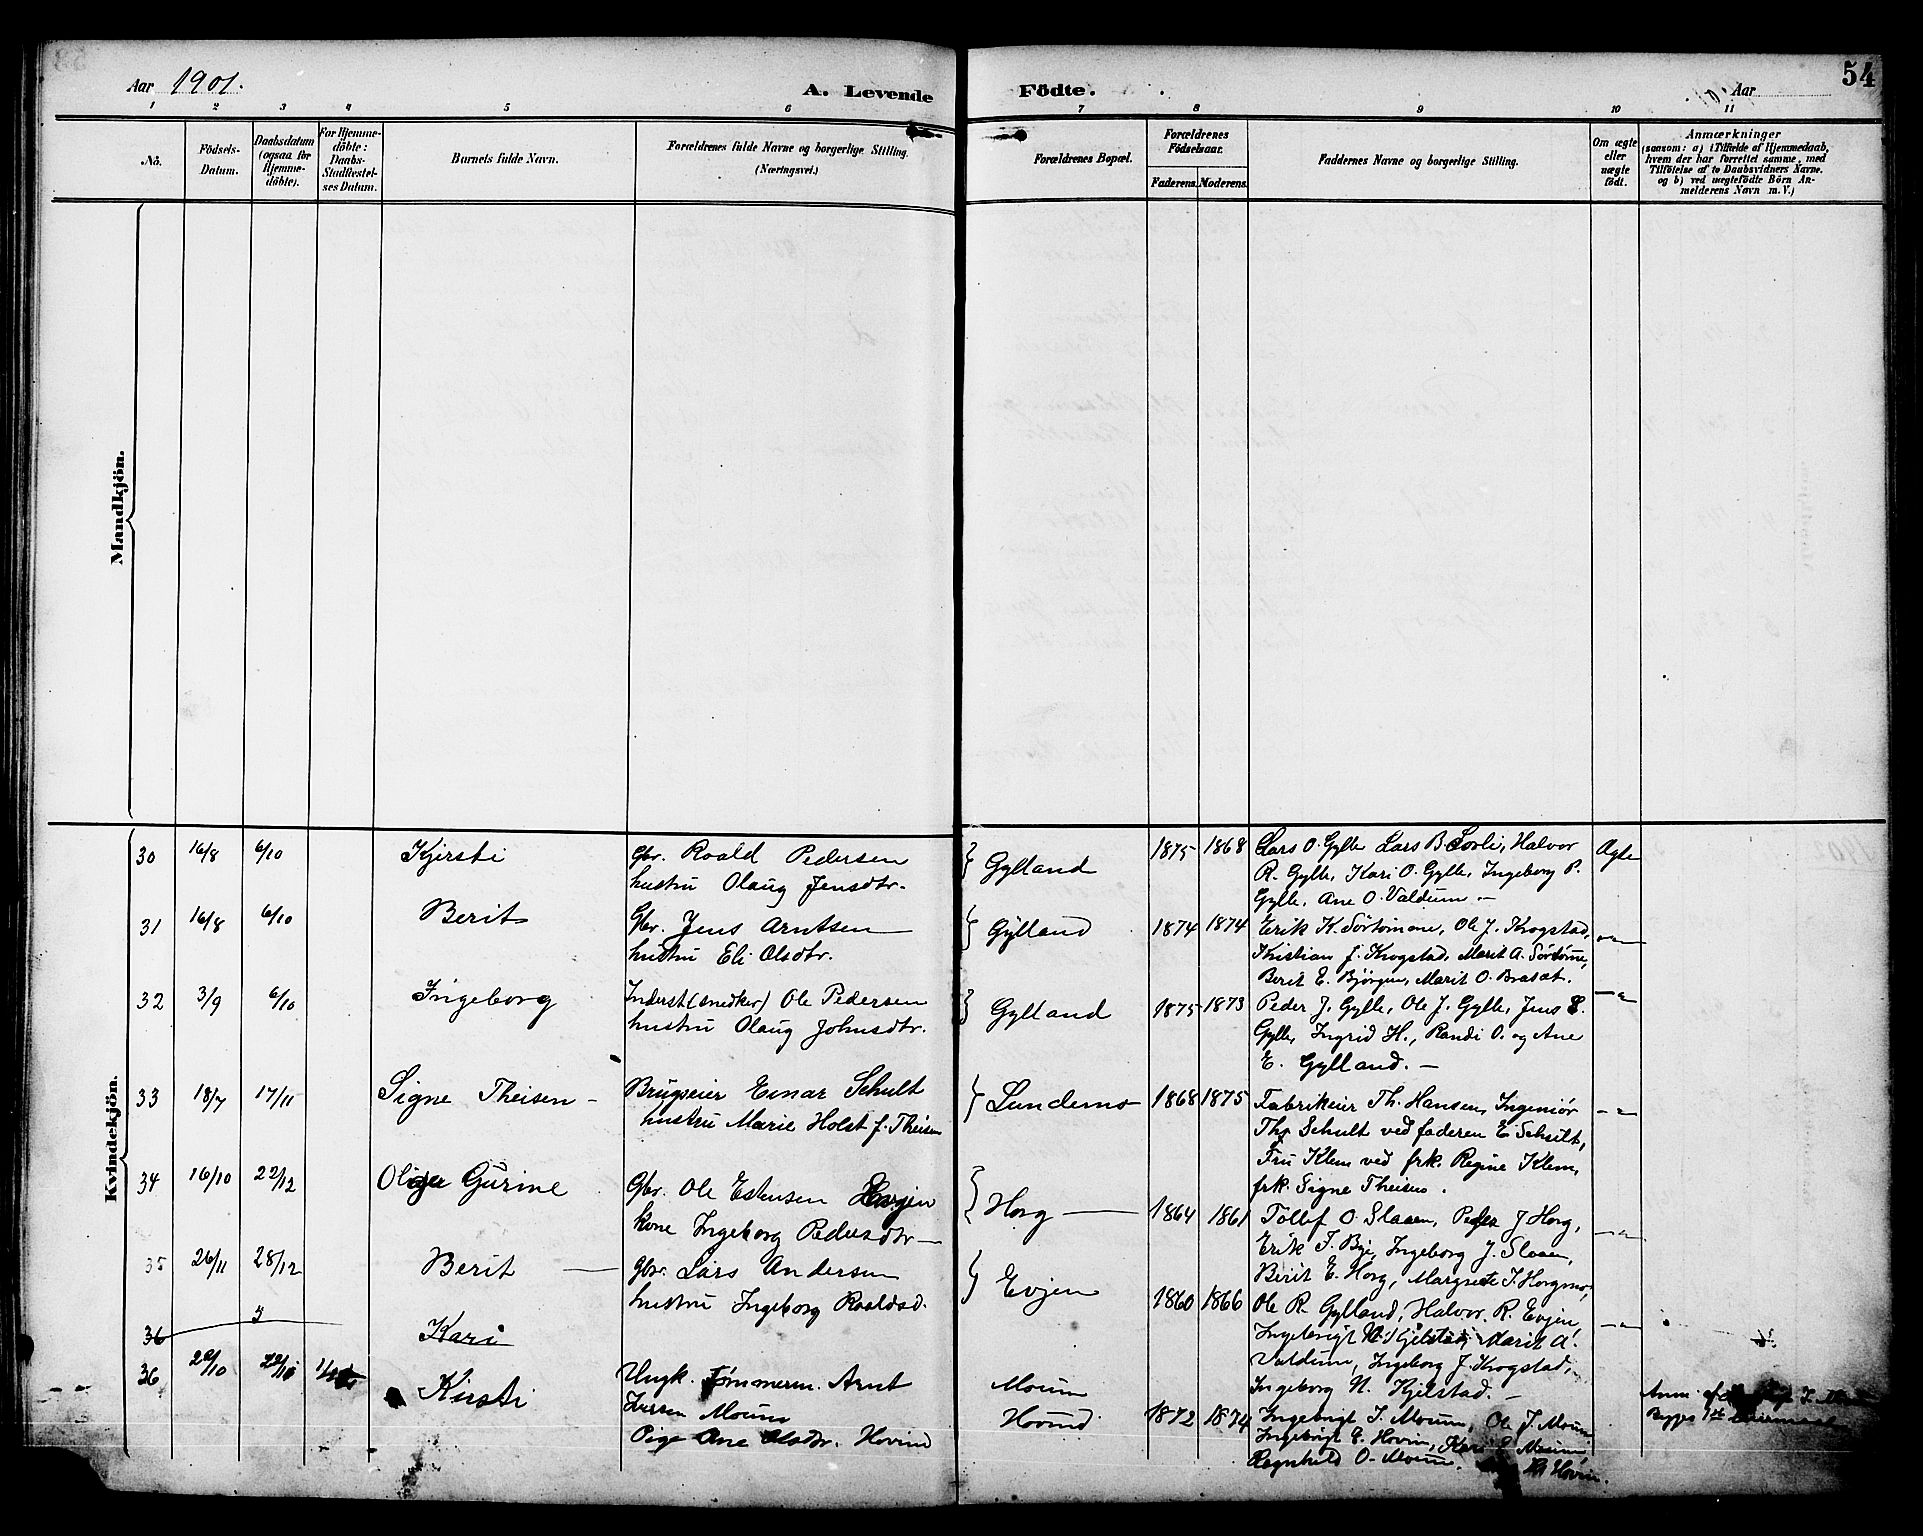 Aar 1901.
A. Levende Födte.
Aar
54
1 2 3 4 5 6 7 8 9 10 11
No.
Födsels-Datum.
Daabsdatum (ogsaa for Hjemme-döbte).
For Hjemme-döbte: Daabs-Stadfestel-ses Datum.
Barnets fulde Navn.
Forældrenes fulde Navne og borgerlige Stilling.
(Næringsvei.)
Forældrenes Bopæl.
Forældrenes Födselsaar.
Faderens. Moderens.
Faddernes Navne og borgerlige Stilling.
Om ægte eller uægte födt.
Anmærkninger
(saasom: a) i Tilfælde af Hjemmedaab,
hvem der har forrettet samme, med
Tilföielse af to Daabsvidners Navne,
og b) ved uægtefödte Börn An-
melderens Navn m. V.)
Mandkjön.
Kvindekjön.
30 16/8 6/10 Kjersti Gbr. Roald Pedersen
hustru Olaug Jensdtr.
Gylland 1875 1868
Lars O. Gylle Lars B. Sorli, Halvor
R. Gylle, Kari O. Gylle, Ingeborg P.
Gylle, Ane O. Valdum.
Ægte
31 16/8 6/10 Berit Gbr. Jens Arntsen
hustru Eli Olsdtr.
Gylland 1874 1874
Erik K. Sörtömme, Ole J. Krogstad,
Kristian J. Krogstad, Marit A. Sörtömme,
Berit E. Bjørgen, Marit O. Brasat.
32 3/9 6/10 Ingeborg Inderst (snedker) Ole Pedersen
hustru Olaug Johnsdtr.
Gylland 1875 1873
Peder J. Gylle, Ole J. Gylle, Jens E.
Gylle, Ingrid H., Randi O. og Ane
E. Gylland.
33 18/7 17/11 Signe Theisen Brugseier Einar Schult
hustru Marie Holst f. Theisen
Lundemo 1868 1875
Fabrikeier Th. Hansen, Ingeniør
Th. Schult ved faderen E. Schult,
Fru Klem ved frk. Regine Klem,
frk. Signe Theisen.
34 16/10 22/12 Gurine Gbr. Ole Estensen
kone Ingeborg Pedersdtr
Horg 1864 1861
Tollef O. Slaaen, Peder J. Horg,
Erik F. Bye, Ingeborg J. Slaaen,
Berit E. Horg, Margrete I. Horgmo,
35 26/11 28/12 Berit Gbr. Lars Andersen
hustru Ingeborg Roaldsd.
Evjen 1860 1866
Ole R. Gylland, Halvor R. Evjen,
Ingebrigt N. Kjelstad, Marit A.
Valdum, Ingeborg J. Krogstad,
Ingeborg N. Kjelstad.
36 Kari
36 Kirsti Ungk. Tømmerm. Arnt
Moum
Pige Ane Olsdtr. Hovind
Moum
Hovind 1872 1874
Ingebrigt I. Moum, Ole J. Moum
Ingebrigt E. Hovin, Kari Moum
Ragnhild O. Moum. Hovin.